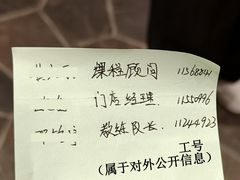 课程顾问 11568841
门店经理 11550996
教练队长 11244923
工号
(属于对外公开信息)